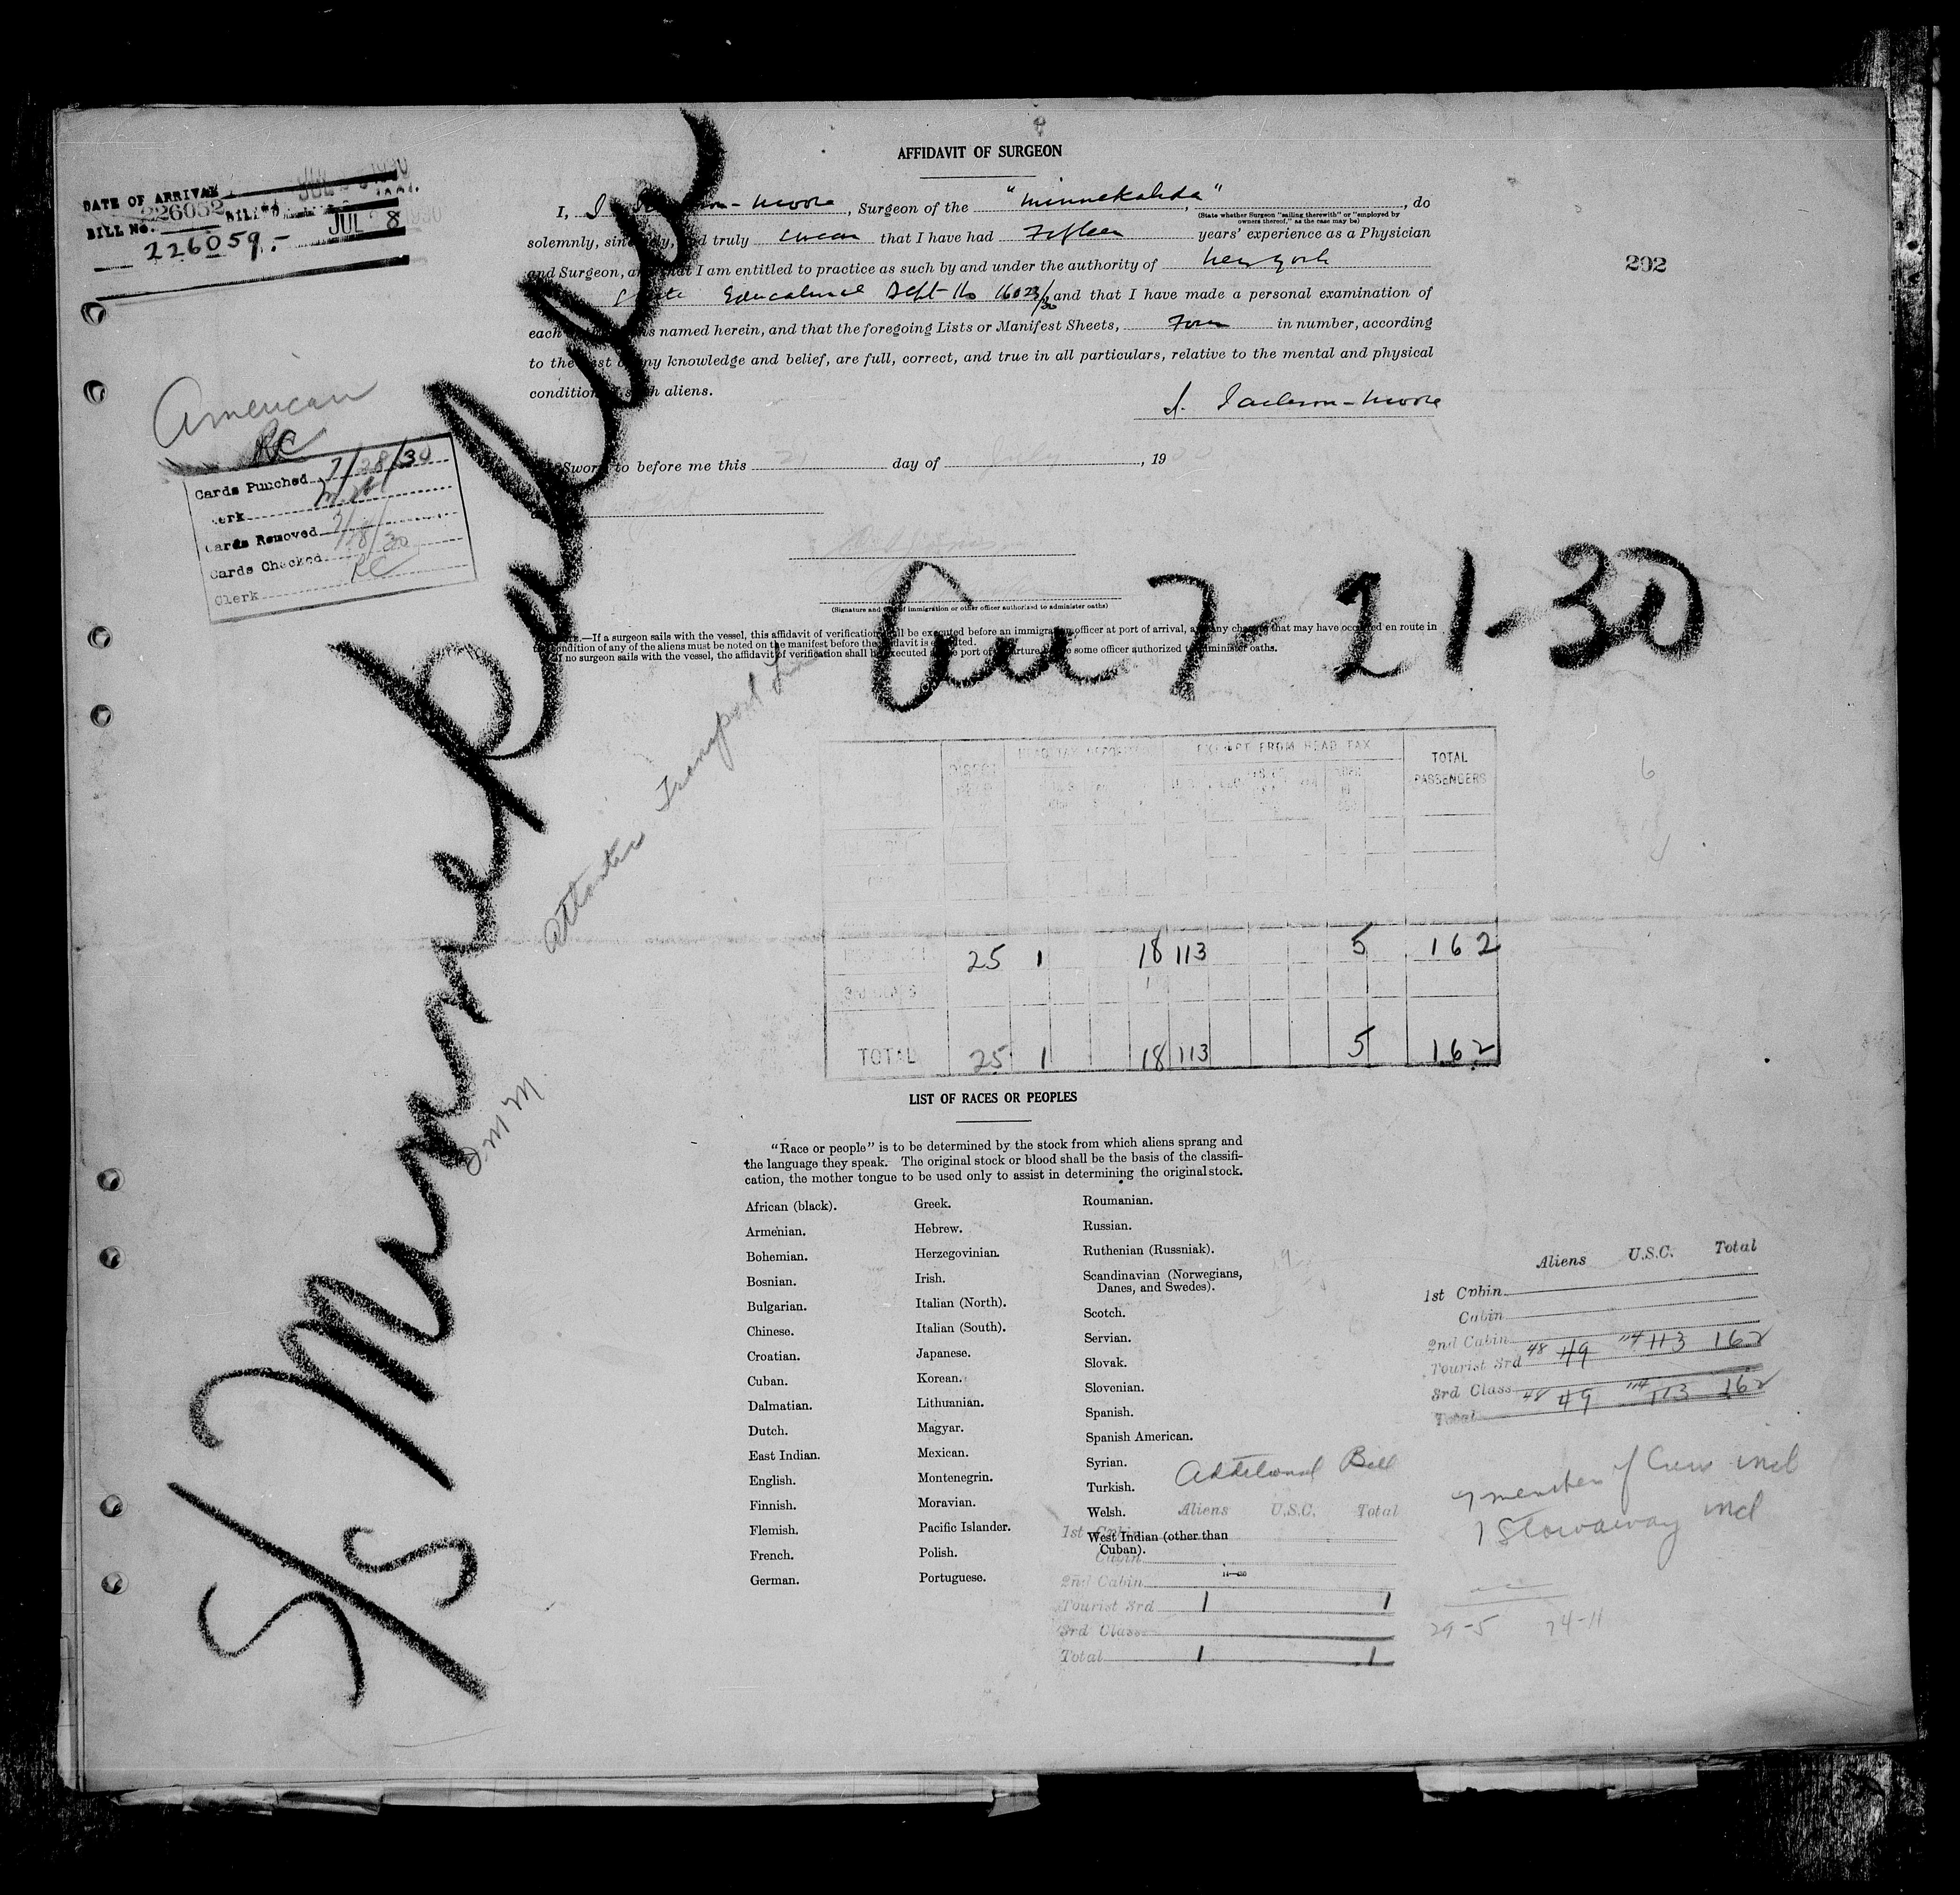 AFFIDAVIT OF SURGEON
I, J. Jackson-Moore, Surgeon of the "Minnekahda", do
(State whether Surgeon "sailing therewith" or "employed by
owners thereof," as the case may be)
solemnly, sincerely, and truly swear that I have had Fifteen years' experience as a Physician
and Surgeon, and that I am entitled to practice as such by and under the authority of New York
State Educational Dept No and that I have made a personal examination of
each named herein, and that the foregoing Lists or Manifest Sheets, Four in number, according
to the best of my knowledge and belief, are full, correct, and true in all particulars, relative to the mental and physical
condition of such aliens.
J. Jackson-Moore
Sworn to before me this 21 day of July, 1930
(Signature and title of immigration or other officer authorized to administer oaths)
NOTE.—If a surgeon sails with the vessel, this affidavit of verification shall be executed before an immigration officer at port of arrival, and any changes that may have occurred en route in
the condition of any of the aliens must be noted on the manifest before the affidavit is executed.
If no surgeon sails with the vessel, the affidavit of verification shall be executed at the port of departure before some officer authorized to administer oaths.
DATE OF ARRIVAL JUL 1930
226052
BILL No. JUL 28 1930
226059.-
202
American
RC
Cards Punched 7/28/30
Clerk
Cards Removed
Cards Checked 7/28/30
Clerk RC
S/S Minnekahda
Arr 7-21-30
Atlantic Transport Line
DMM
HEAD TAX EXEMPT FROM HEAD TAX TOTAL
PASSENGERS
25 1 18 113 5 162
3RD CLASS
TOTAL 25 1 18 113 5 162
LIST OF RACES OR PEOPLES
"Race or people" is to be determined by the stock from which aliens sprang and
the language they speak. The original stock or blood shall be the basis of the classifi-
cation, the mother tongue to be used only to assist in determining the original stock.
African (black).
Armenian.
Bohemian.
Bosnian.
Bulgarian.
Chinese.
Croatian.
Cuban.
Dalmatian.
Dutch.
East Indian.
English.
Finnish.
Flemish.
French.
German.
Greek.
Hebrew.
Herzegovinian.
Irish.
Italian (North).
Italian (South).
Japanese.
Korean.
Lithuanian.
Magyar.
Mexican.
Montenegrin.
Moravian.
Pacific Islander.
Polish.
Portuguese.
Roumanian.
Russian.
Ruthenian (Russniak).
Scandinavian (Norwegians,
Danes, and Swedes).
Scotch.
Servian.
Slovak.
Slovenian.
Spanish.
Spanish American.
Syrian.
Turkish.
Welsh.
West Indian (other than
Cuban).
Aliens U.S.C. Total
1st Cabin
Cabin
2nd Cabin
Tourist 3rd 48 49 114 113 162
3rd Class
Total 48 49 114 113 162
7 member of Crew incl
1 Stowaway incl
29-5 74-11
Additional Bill
Aliens U.S.C. Total
1st Cabin
Cabin
2nd Cabin
Tourist 3rd 1 1
3rd Class
Total 1 1